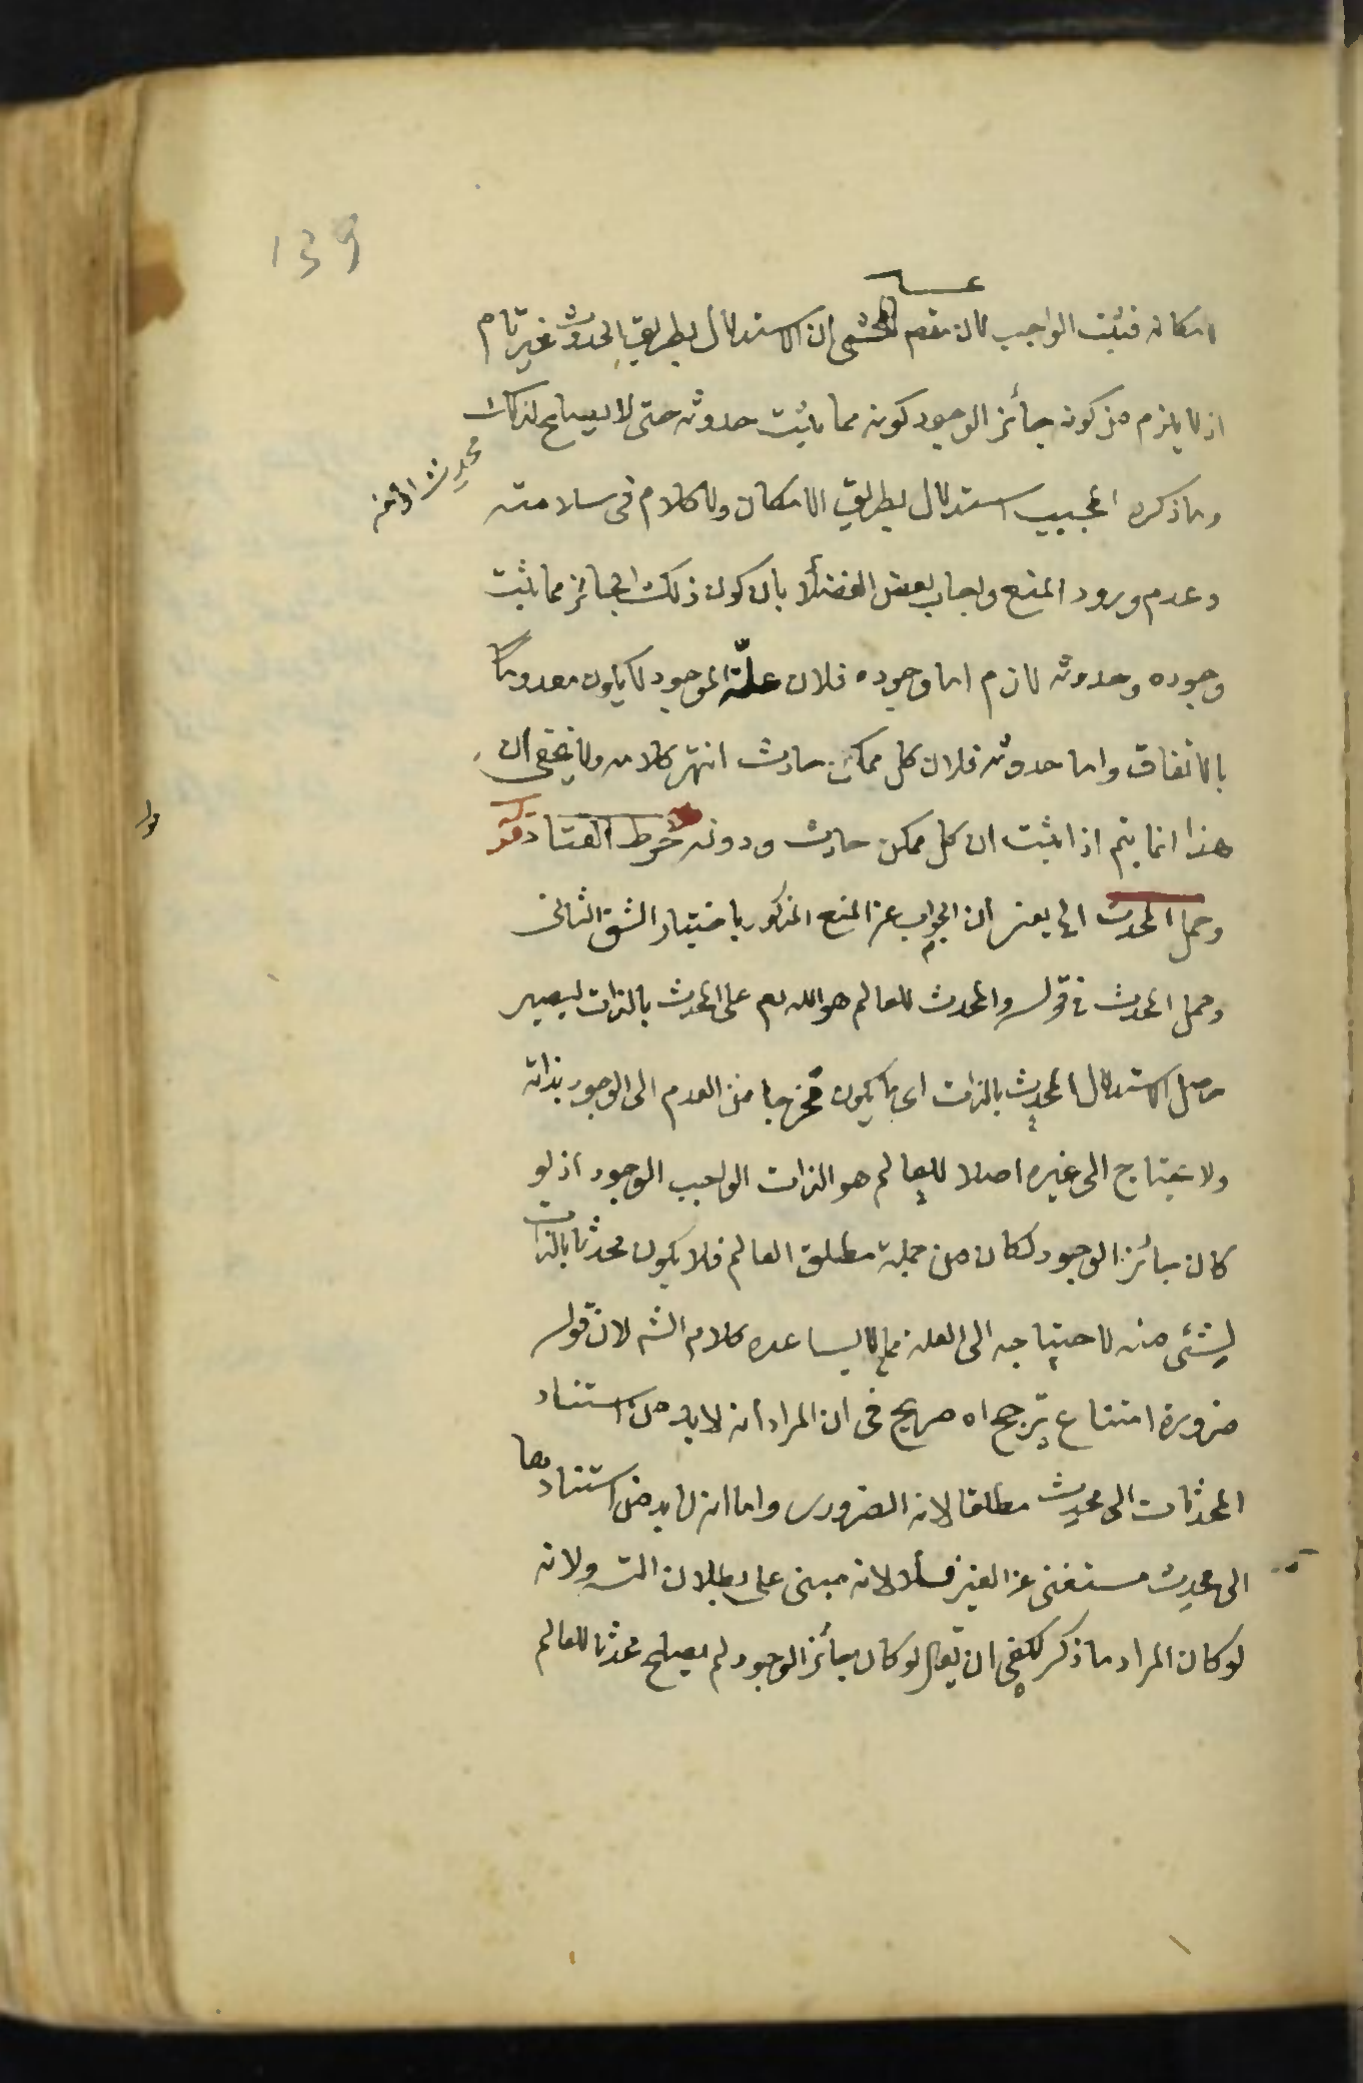 139
امكانه فثبت الواجب لان مقصود المحشى ان الاستدلال بطريق الحدوث غير تام
اذ لا يلزم من كونه جائز الوجود كونه مما يثبت حدوثه حتى لا يصلح لذلك
محدث
وما ذكره المجيب استدلال بطريق الامكان ولا كلام فى سلامته
وعدم ورود المنع واجاب بعض الفضلا بان كون ذلك الجائز مما يثبت
وجوده وحدوثه لازم اما وجوده فلان علّة الموجود لا يكون معدوما
بالاتفاق واما حدوثه فلان كل ممكن حادث انتهى كلامه ولا يخفى ان
هذا انما يتم اذا ثبت ان كل ممكن حادث ودونه خرط القتاد قوله
وحمل المحدث الخ يعنى ان الجواب عن المنع المذكور باختيار الشق الثانى
وحمل المحدث فى قوله والمحدث للعالم هو الله تع على المحدث بالذات ليصير
حاصل الاستدلال المحدث بالذات اى ما يكون مخرجا من العدم الى الوجود بذاته
ولا يحتاج الى غيره اصلا للعالم هو الذات الواجب الوجود اذ لو
كان جائز الوجود لكان من جملة مطلق العالم فلا يكون محدثا بالذات
لشئ منه لاحتياجه الى العلة مما لا يساعده كلام الش لان قوله
ضرورة امتناع ترجح اه صريح فى ان المراد انه لا بد من استناد
المحدثات الى محدث مطلقا لانه الضرورى واما انه لا بد من استنادها
الى محدث مستغنى عن الغير فلا لانه مبنى على بطلان التس ولانه
لو كان المراد ما ذكر لكفى ان يقال لو كان جائز الوجود لم يصلح محدثا للعالم